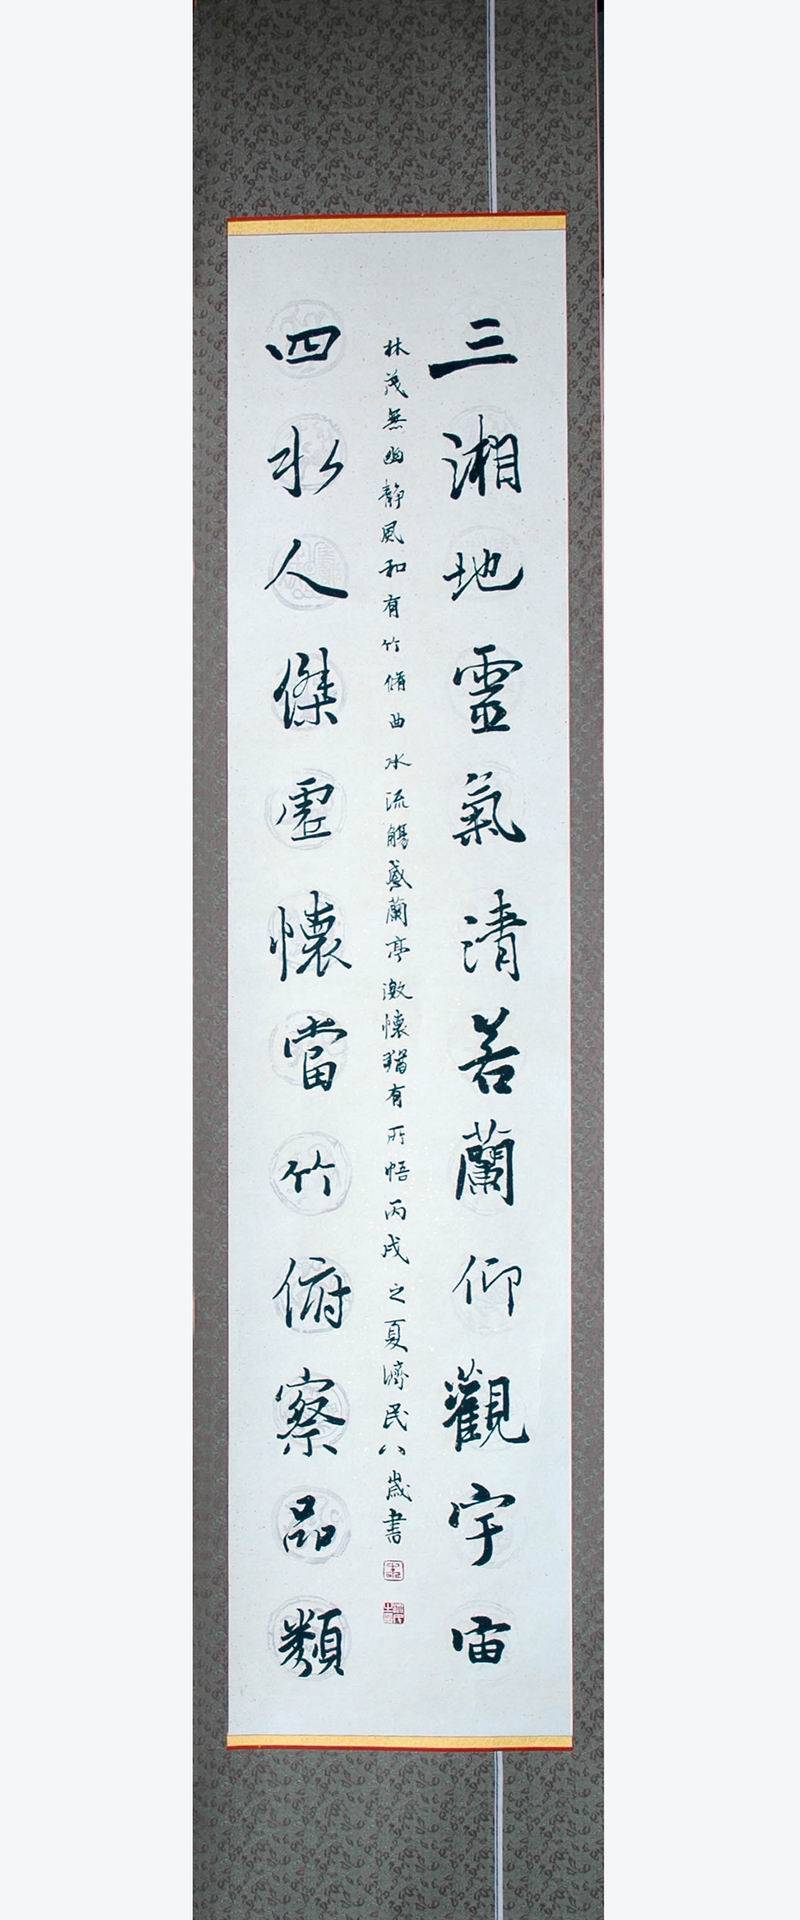 三湘地靈氣清若蘭仰觀宇宙
林茂無幽靜風和有竹脩曲水流觴感蘭亭激懷猶有所悟丙戌之夏濟民八歲書
四水人傑虛懷當竹俯察品類